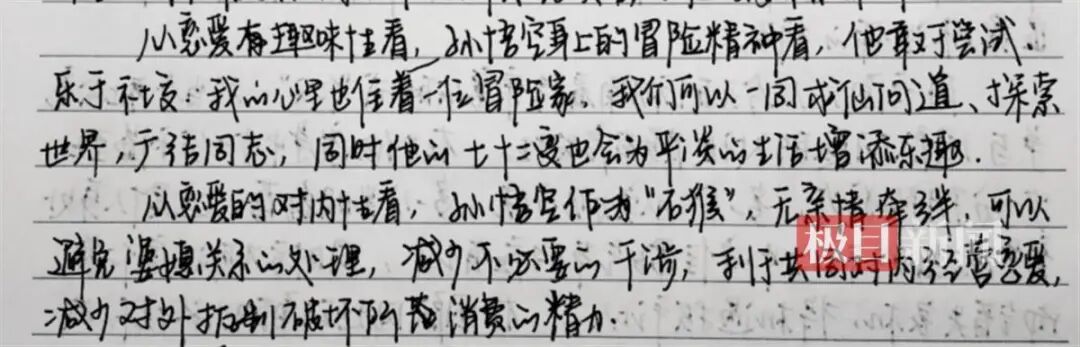 从恋爱有趣味性看,孙悟空身上的冒险精神看,他敢于尝试.
乐于社交.我的心里也住着一位冒险家.我们可以一同求仙问道、探索
世界,广结同志,同时他的七十二变也会为平淡的生活增添乐趣.
从恋爱的对内性看,孙悟空作为“石猴”,无亲情牵绊.可以
避免婆媳关系的处理,减少不必要的干涉,利于共同对内经营恋爱,
减少对外抵制破坏所花消费的精力.
极目新闻